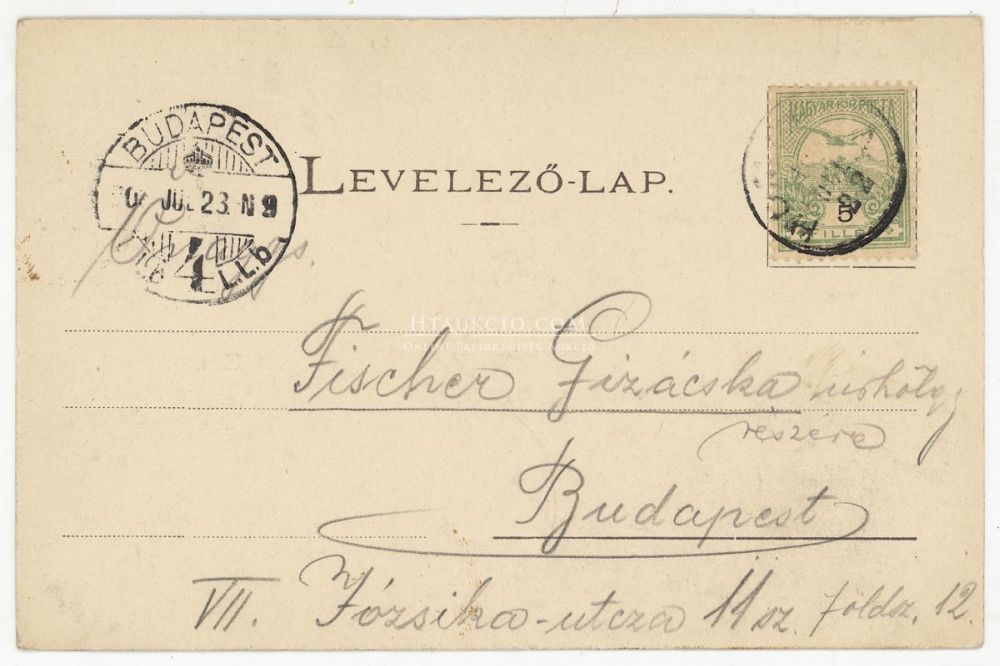 LEVELEZŐ-LAP.
MAGYAR KIR. POSTA
5
FILLÉR
BUDAPEST
JUL 23. N 9
4
L.L.b
HTAUKCIO.COM
ONLINE PAPÍRRÉGISÉG AUKCIÓ
Fischer Gizácska úrhölgy
részére
Budapest
VII. Józsika-utcza 11 sz. földsz. 12.